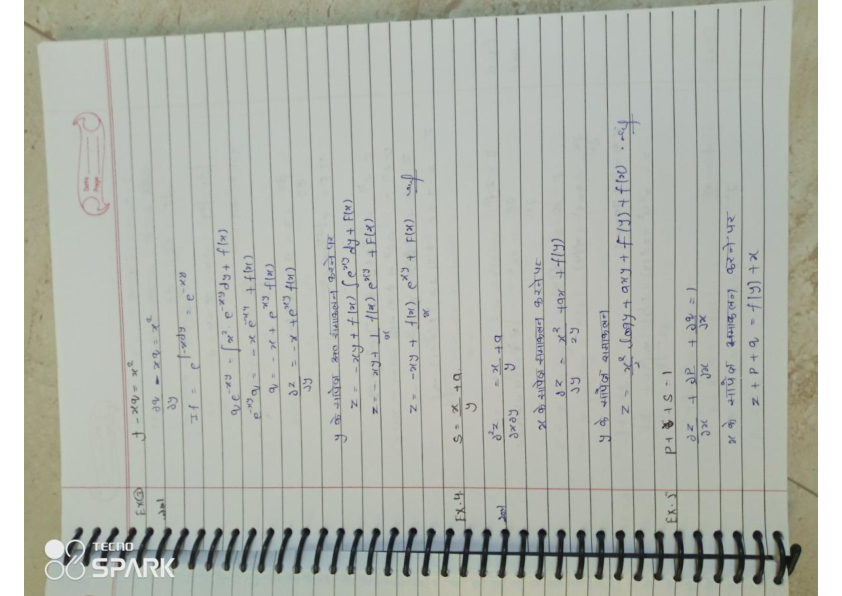 Date
Page
Ex③ t - xq = x²
हल ∂q/∂y - xq = x²
If = e^∫-xdy = e^-xy
q e^-xy = ∫x² e^-xy dy + f(x)
e^-xy q = -x e^-xy + f(x)
q = -x + e^xy f(x)
∂z/∂y = -x + e^xy f(x)
y के सापेक्ष समाकलन करने पर
z = -xy + f(x) ∫e^xy dy + F(x)
z = -xy + 1/x f(x) e^xy + F(x)
z = -xy + f(x)/x e^xy + F(x)
Ex.4. s = x/y + a
हल ∂²z/∂x∂y = x/y + a
x के सापेक्ष समाकलन करने पर
∂z/∂y = x²/2y + ax + f(y)
y के सापेक्ष समाकलन
z = x²/2 logy + axy + F(y) + f(x)
Ex.5 P + s = 1
∂z/∂x + ∂P/∂x + ∂q/∂x = 1
x के सापेक्ष समाकलन करने पर
z + p + q = f(y) + x
TECNO
SPARK